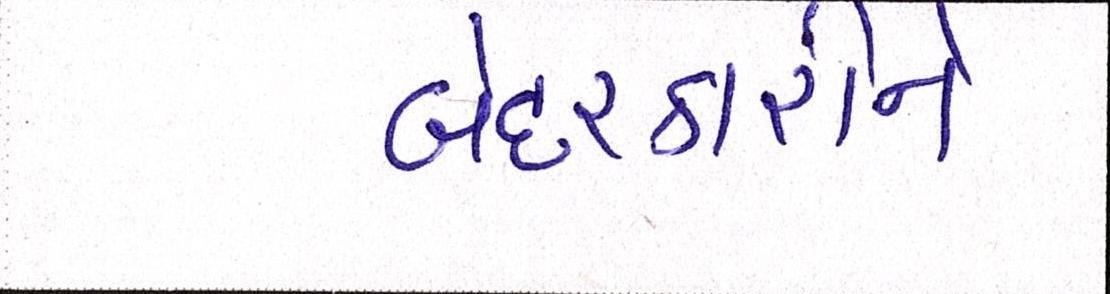 બેદરકારીને